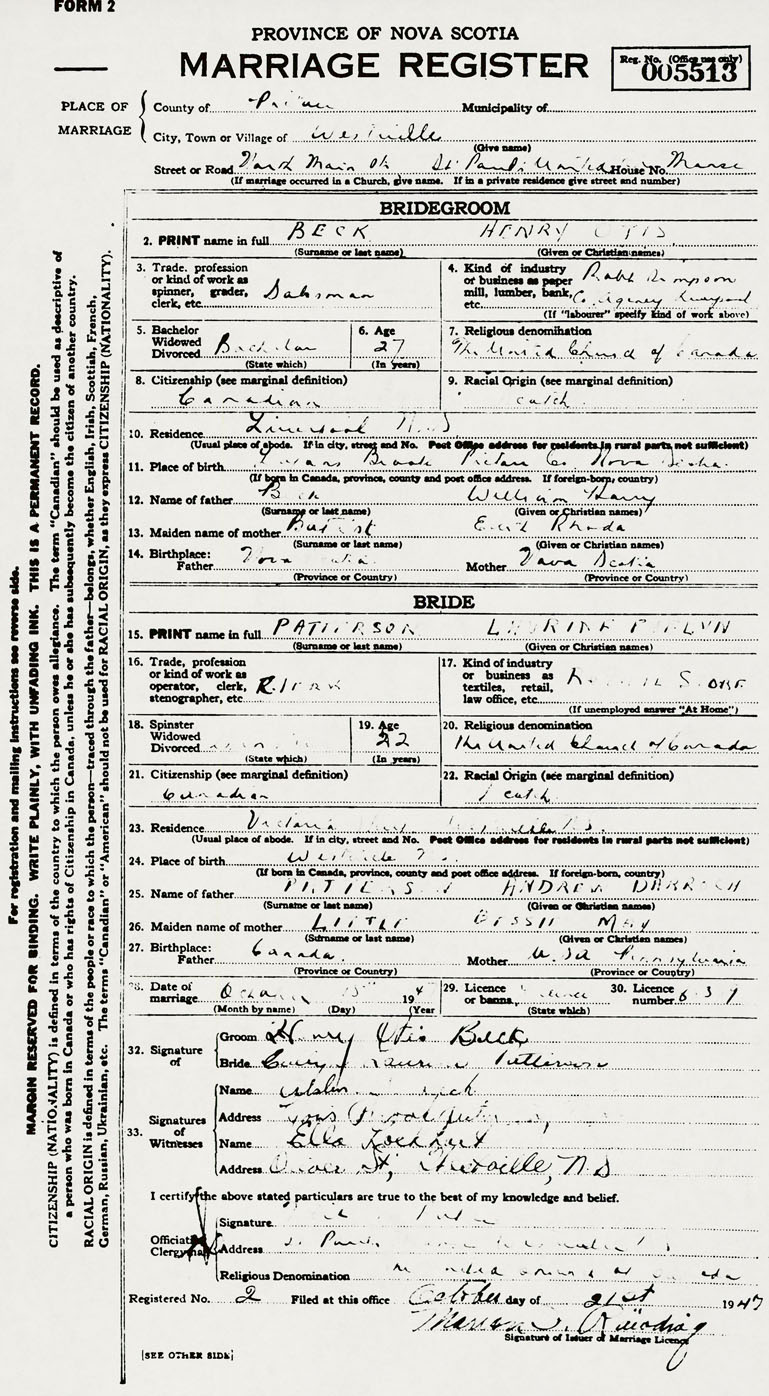 FORM 2
PROVINCE OF NOVA SCOTIA
MARRIAGE REGISTER
Reg. No. (Office use only)
005513
PLACE OF MARRIAGE
County of Pictou Municipality of
City, Town or Village of Westville
(Give name)
Street or Road North Main St. St. Paul's United House No. Manse
(If marriage occurred in a Church, give name. If in a private residence give street and number)
BRIDEGROOM
2. PRINT name in full BECK HENRY OTIS
(Surname or last name) (Given or Christian names)
3. Trade, profession or kind of work as spinner, grader, clerk, etc. Salesman
4. Kind of industry or business as paper mill, lumber, bank, etc. Robt Simpson Co Agency Liverpool
(If "labourer" specify kind of work above)
5. Bachelor Widowed Divorced Bachelor
(State which)
6. Age 27
(In years)
7. Religious denomination The United Church of Canada
8. Citizenship (see marginal definition) Canadian
9. Racial Origin (see marginal definition)
10. Residence Liverpool N.S
(Usual place of abode. If in city, street and No. Post Office address for residents in rural parts not sufficient)
11. Place of birth Brook Pictou Co Nova Scotia
(If born in Canada, province, county and post office address. If foreign-born, country)
12. Name of father Beck William Harry
(Surname or last name) (Given or Christian names)
13. Maiden name of mother Rhoda
(Surname or last name) (Given or Christian names)
14. Birthplace: Father Nova Scotia Mother Nova Scotia
(Province or Country) (Province or Country)
BRIDE
15. PRINT name in full PATTERSON
(Surname or last name) (Given or Christian names)
16. Trade, profession or kind of work as operator, clerk, stenographer, etc.
17. Kind of industry or business as textiles, retail, law office, etc. STORE
(If unemployed answer "At Home")
18. Spinster Widowed Divorced
(State which)
19. Age 22
(In years)
20. Religious denomination The United Church of Canada
21. Citizenship (see marginal definition) Canadian
22. Racial Origin (see marginal definition)
23. Residence Victoria
(Usual place of abode. If in city, street and No. Post Office address for residents in rural parts not sufficient)
24. Place of birth Westville
(If born in Canada, province, county and post office address. If foreign-born, country)
25. Name of father PATTERSON ANDREW DARROCH
(Surname or last name) (Given or Christian names)
26. Maiden name of mother LITTLE BESSIE MAY
(Surname or last name) (Given or Christian names)
27. Birthplace: Father Canada. Mother U.S.A Pennsylvania
(Province or Country) (Province or Country)
28. Date of marriage October 15 194
(Month by name) (Day) (Year)
29. Licence or banns Licence
(State which)
30. Licence number
32. Signature of
Groom Henry Otis Beck
Bride Patterson
33. Signatures of Witnesses
Name Beck
Address
Name Ella Lockhart
Address
I certify the above stated particulars are true to the best of my knowledge and belief.
Officiating Clergyman
Signature
Address St. Paul's
Religious Denomination
Registered No. 2 Filed at this office October day of 21st 1947
Signature of Issuer of Marriage Licence
[SEE OTHER SIDE]
For registration and mailing instructions see reverse side.
MARGIN RESERVED FOR BINDING. WRITE PLAINLY, WITH UNFADING INK. THIS IS A PERMANENT RECORD.
CITIZENSHIP (NATIONALITY) is defined in terms of the country to which the person owes allegiance. The term "Canadian" should be used as descriptive of
a person who was born in Canada or who has rights of Citizenship in Canada, unless he or she has subsequently become the citizen of another country.
RACIAL ORIGIN is defined in terms of the people or race to which the person—traced through the father—belongs, whether English, Irish, Scottish, French,
German, Russian, Ukrainian, etc. The terms "Canadian" or "American" should not be used for RACIAL ORIGIN, as they express CITIZENSHIP (NATIONALITY).